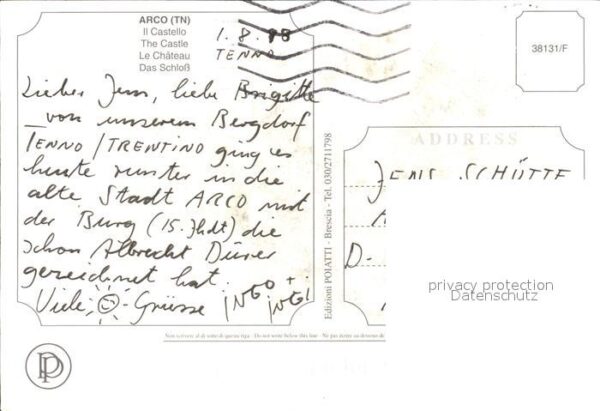 ARCO (TN)
Il Castello
The Castle
Le Château
Das Schloß
1.8.98
TENNO
38131/F
Lieber Jens, liebe Brigitte
von unserem Bergdorf
TENNO/TRENTINO ging es
heute runter in die
alte Stadt ARCO mit
der Burg (15. Jhdt) die
schon Albrecht Dürer
gezeichnet hat.
Viele Grüsse INGO +
Edizioni POIATTI - Brescia - Tel. 030/2711798
ADDRESS
JENS SCHÜTTE
D-
privacy protection
Datenschutz
Non scrivere al di sotto di questa riga - Do not write below this line - Ne pas écrire au dessous de